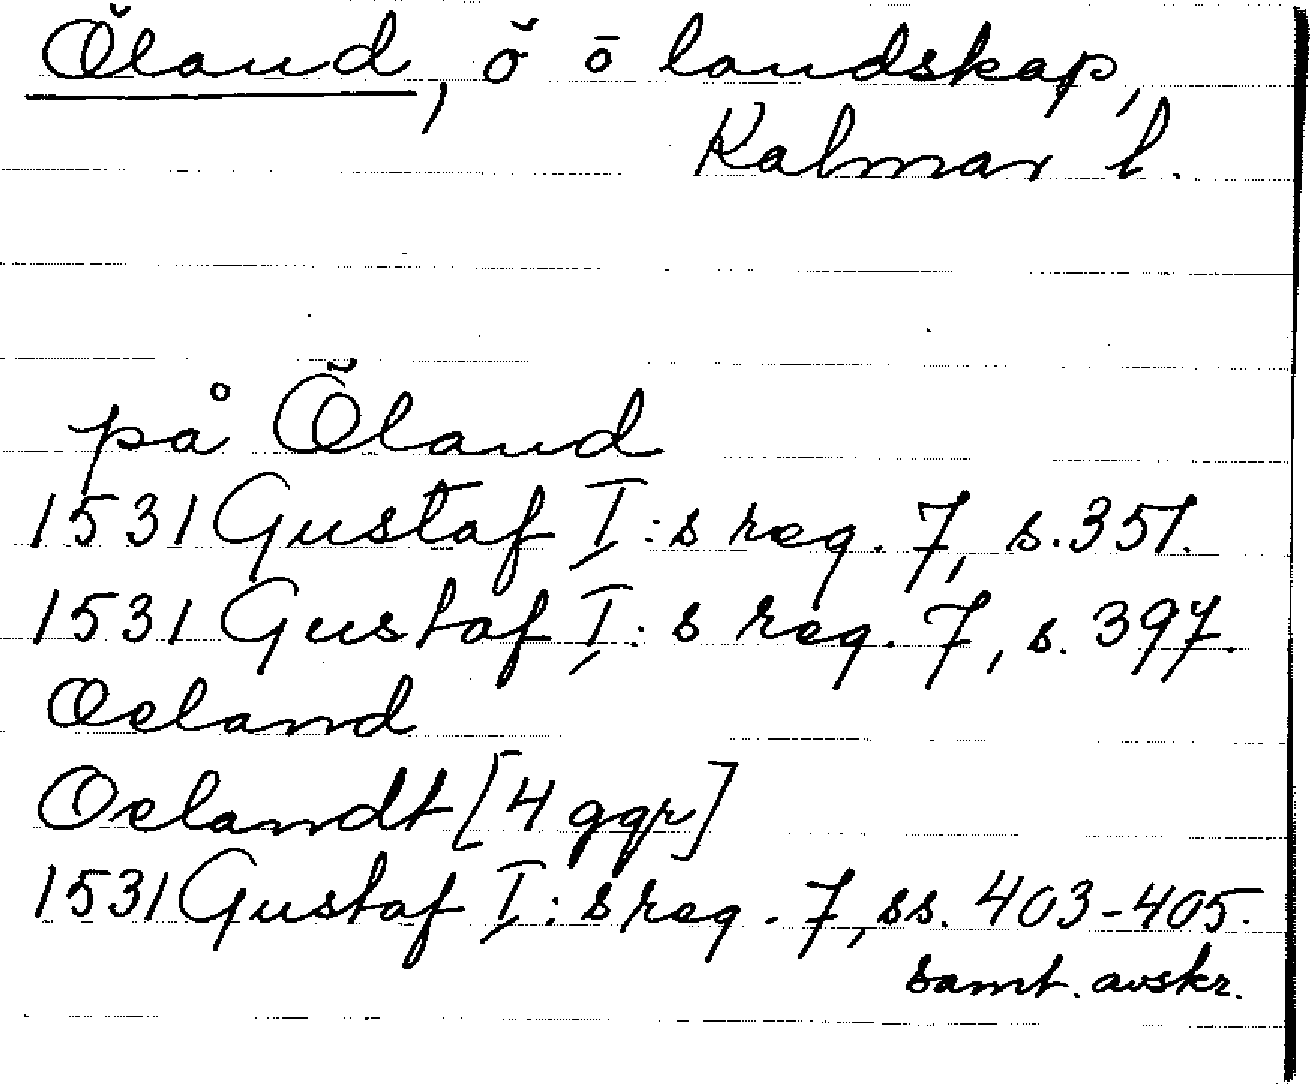 Öland, ö o landskap,
Kalmar l.
på Öland
1531 Gustaf I:s reg. 7, s. 351.
1531 Gustaf I:s reg. 7, s. 397.
Oeland
Oelandt [4 ggr]
1531 Gustaf I:s reg. 7, ss. 403-405.
samt. avskr.